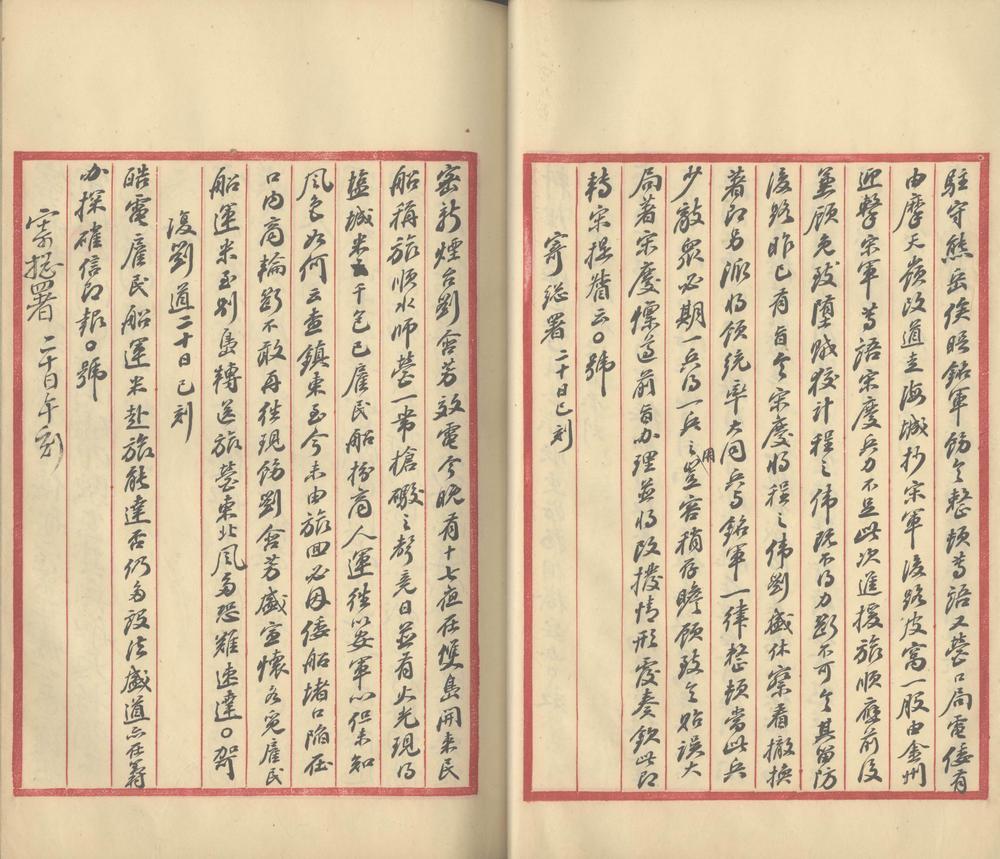 駐守熊岳俟晤銘軍飭令整頓等語又營口局電倭有
由摩天嶺改道出海城抄宋軍後路皮窩一股由金州
迎擊宋軍等語宋慶兵力不足此次進援旅順應前後
兼顧免致墮賊狡計程之偉既不得力斷不可令其留防
後路昨已有旨令宋慶將程之偉劉盛休察看撤換
著即另派將領統率大同兵與銘軍一律整頓當此兵
少敵眾必期一兵得一兵之用豈容稍存瞻顧致令貽誤大
局著宋慶懍遵前旨办理並將改撥情形覆奏欽此即
轉宋提督云〇號
寄總署 二十日巳刻
密新煙台劉含芳效電今晚有十七夜在雙島開來民
船稱旅順水師營一帶槍礮之聲竟日並有火光現得
鹽城米五千包已雇民船扮商人運往以安軍心但未知
風色如何云查鎮東至今未由旅回必因倭船堵口陷在
口內商輪斷不敢再往現飭劉含芳盛宣懷各覓雇民
船運米至別島轉送旅營東北風多恐難速達〇號
復劉道 二十日巳刻
皓電雇民船運米赴旅能達否仍多設法盛道亦在籌
办探確信即報〇號
寄總署 二十日午刻